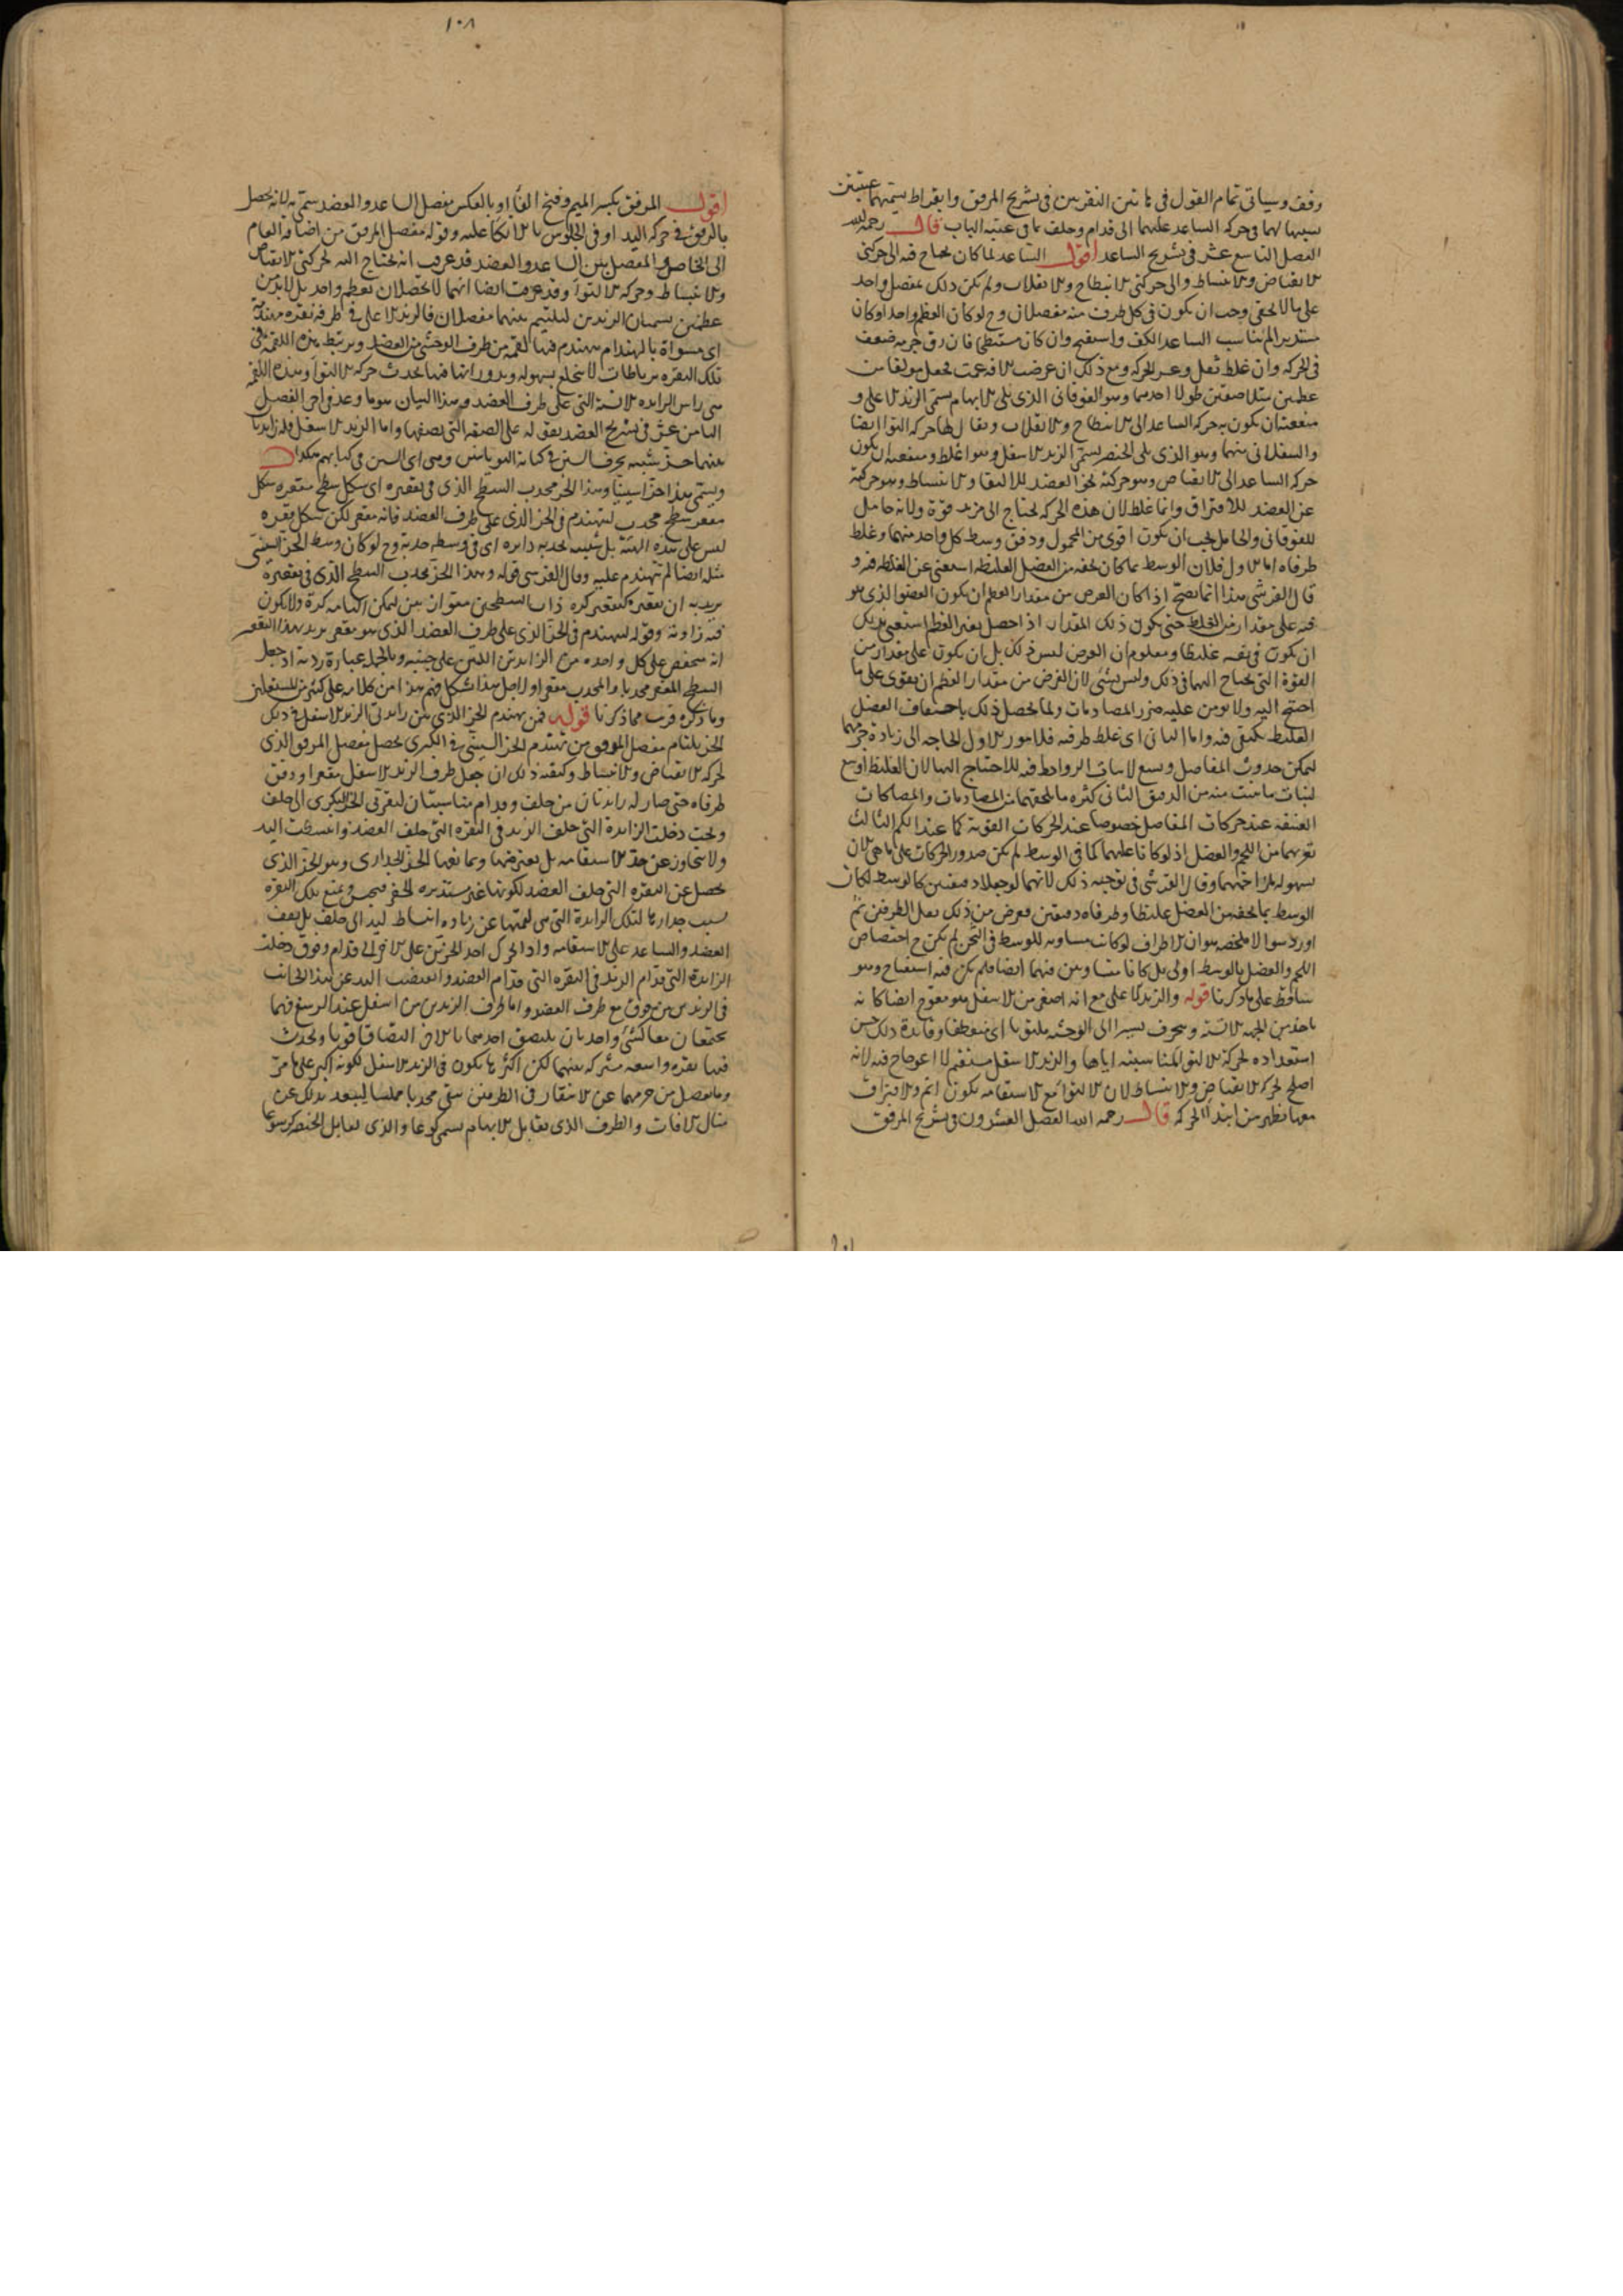 وقف وسياتى تمام القول فى هاتين النقرتين فى تشريح المرفق وابقراط يسميهما عتبتين
تشبيها لهما فى حركه الساعد عليهما الى قدام وخلف بما فى عتبة الباب قال رحمه الله
الفصل التاسع عشر فى تشريح الساعد اقول الساعد لما كان يحتاج فيه الى حركتى
الانقباض والانبساط والى حركتى الانبطاح والانقلاب ولم يكن ذلك بمفصل واحد
على ما لا يخفى وجب ان يكون فى كل طرف منه مفصلان وح لو كان العظم واحدا وكان
مستديرا لم يناسب الساعد الكف واستقبح وان كان مستبطحا فان رق جرمه ضعف
فى الحركه وان غلظ ثقل وعسر الحركه ومع ذلك ان عرضت الافة عمت فجعل مولفا من
عظمين متلاصقين طولا احدهما وهو الفوقانى الذى يلى الابهام يسمى الزند الاعلى و
منفعته ان يكون به حركه الساعد الى الانبطاح والانقلاب ويقال لها حركه التوا ايضا
والسفلانى منهما وهو الذى يلى الخنصر يسمى الزند الاسفل وهو اغلظ ومنفعته ان يكون
حركه الساعد الى الانقباض وهو حركته نحو العضد للالتقا والانبساط وهو حركته
عن العضد للافتراق وانما غلظ لان هذه الحركه تحتاج الى مزيد قوة ولانه حامل
للفوقانى والحامل يجب ان يكون اقوى من المحمول ودقق وسط كل واحد منهما وغلظ
طرفاه اما الاول فلان الوسط بما كان يحفه من العضل الغليظه استغنى عن الغلظ فيه و
قال القرشى هذا انما يصح اذا كان الغرض من مقدار العظم ان يكون العضو الذى هو
فيه على مقدار من الغلظ حتى يكون ذلك المقدار اذا حصل بغير العظم استغنى بذلك
ان يكون فى نفسه غليظا ومعلوم ان الغرض ليس ذلك بل ان يكون على مقدار من
القوة التى يحتاج اليها فى ذلك وليس بشئ لان الغرض من مقدار العظم ان يقوى على ما
احتيج اليه ولا يومن عليه ضرر المصادمات ولما يحصل ذلك باحتفاف العضل
الغليظ يكتفى فيه واما الثانى اى غلظ طرفيه فلامور الاول الحاجه الى زيادة جرمهما
ليمكن حدوث المفاصل ويسع لانبات الروابط فيه للاحتياج اليها لان الغليظ اوسع
لنبات ما ينبت منه من الدقيق الثانى كثره ما يلحقهما من المصادمات والمصاكات
العنيفه عند حركات المفاصل خصوصا عند الحركات القويه كما عند اللكم الثالث
تعريهما من اللحم والعضل اذ لو كانا عليهما كما فى الوسط لم يكن صدور الحركات على ما هى الان
بسهوله لمزاحمتهما وقال القرشى فى توجيه ذلك لانهما لو جعلا دقيقين كالوسط لكان
الوسط بما يحفه من العضل غليظا وطرفاه دقيقين فعرض من ذلك ثقل الطرفين ثم
اورد سوالا ملخصه هو ان الاطراف لو كانت مساويه للوسط فى الثخن لم يكن ح اختصاص
اللحم والعضل بالوسط اولى بل كانا متساويين فيهما ايضا فلم يكن فيه استقباح وهو
ساقط على ما ذكرنا قوله والزند الاعلى مع انه اصغر من الاسفل هو معوج ايضا كانه
ياخذ من الجهه الانسية ويتحرف يسيرا الى الوحشيه ملتويا اى منعطفا وفايدة ذلك حسن
استعداده لحركة الالتوا لمناسبته اياها والزند الاسفل مستقيم لا اعوجاج فيه لانه
اصلح لحركة الانقباض والانبساط لان الالتواء مع الاستقامه يكون اتم والافتراق
معها تظهر من ابتدا الحركه قال رحمه الله الفصل العشرون فى تشريح المرفق
١٠٨
اقول المرفق بكسر الميم وفتح الفا او بالعكس مفصل الساعد والعضد سمى به لانه يحصل
بالرفق فى حركه اليد او فى الجلوس بالاتكا عليه وقوله مفصل المرفق من اضافه العام
الى الخاص والمفصل بين الساعد والعضد قد عرفت انه يحتاج اليه لحركتى الانقباض
والانبساط وحركه الالتوا وقد عرفت ايضا انهما لا يحصلان بعظم واحد بل لابد من
عظمين يسميان الزندين ليلتئم بينهما مفصلان فالزند الاعلى فى طرفه نقره مهندمة
اى مسواة بالهندام يهندم فيها لقمة من طرف الوحشى من العضد ويرتبط هذه اللقمة فى
تلك النقره برباطات لا ينخلع بسهوله وبدورانها فيها يحدث حركه الالتوا وهذه اللقمه
هى راس الزايده الانسية التى على طرف العضد وهذا البيان هو ما وعد فى اخر الفصل
الثامن عشر فى تشريح العضد بقوله على الصفه التى نصفها واما الزند الاسفل فله زايدتان
بينهما حز شبيه بحرف السين فى كتابة اليونانيين وهى اى السين فى كتابهم هكذا C
ويسمى هذا حزا سينيا وهذا الحز محدب السطح الذى فى تقعيره اى شكل سطح مقعره شكل
مقعر سطح محدب ليتهندم فى الحز الذى على طرف العضد فانه مقعر لكن شكل مقعره
ليس على هذه الهيئة بل شبيه بحدبه دايره اى فى وسطه حدبة وح لو كان وسط الحز السينى
مثله ايضا لم يتهندم عليه وقال القرشى قوله وهذا الحز محدب السطح الذى فى تقعيره
يريد به ان تقعيره كتقعير كره ذات السطحين متوازيين ليمكن التيامه كرة ولا يكون
فيه زاوية وقوله ليتهندم فى الحز الذى على طرف العضد الذى هو مقعر يريد بهذا التقعير
انه منخفض على كل واحده من الزايدتين اللتين على جنبيه وبالجمله عبارة ردية اذ جعل
السطح المقعر محدبا والمحدب مقعرا ولاجل هذا اشكل فهم هذا من كلامه على كثير من المشتغلين
وما ذكره قريب مما ذكرنا قوله فمن تهندم الحز الذى بين زايدتى الزند الاسفل فى ذلك
الحز يلتئام مفصل المرفق من تهندم الحز السينى فى البكرى يحصل مفصل المرفق الذى
لحركه الانقباض والانبساط وكيفيه ذلك ان جعل طرف الزند الاسفل مقعرا ودقق
طرفاه حتى صار له زايدتان من خلف وقدام متناسبتان لنقرتى الحز البكرى الى خلف
وتحت دخلت الزايدة التى خلف الزند فى النقره التى خلف العضد وانبسطت اليد
ولا يتجاوز عن حد الاستقامه بل يعترضها ويمانعها الحز الجدارى وهو الحز الذى
يحصل عن النقره التى خلف العضد لكونها غير مستديره الحفر فيحبس ويمنع تلك النقره
بسبب جداريها لتلك الزايدة التى هى لقمتها عن زياده انبساط اليد الى خلف بل يقف
العضد والساعد على الاستقامه واذا تحرك احد الحزين على الاخر الى قدام وفوق دخلت
الزايدة التى قدام الزند فى النقره التى قدام العضد وانقبضت اليد عن هذا الجانب
فى الزندين من فوق مع طرف العضد واما طرف الزندين من اسفل عند الرسغ فهما
يجتمعان معا كشئ واحد بان يلتصق احدهما بالاخر التصاقا قويا ويحدث
فيها نقره واسعه مشتركه بينهما لكن اكثرها يكون فى الزند الاسفل لكونه اكبر على ما مر
وما يفضل من جرمهما عن الانتقار فى الطرفين يبقى محدبا مملسا ليبعد بذلك عن
منال الافات والطرف الذى يقابل الابهام يسمى كوعا والذى يقابل الخنصر كرسوعا